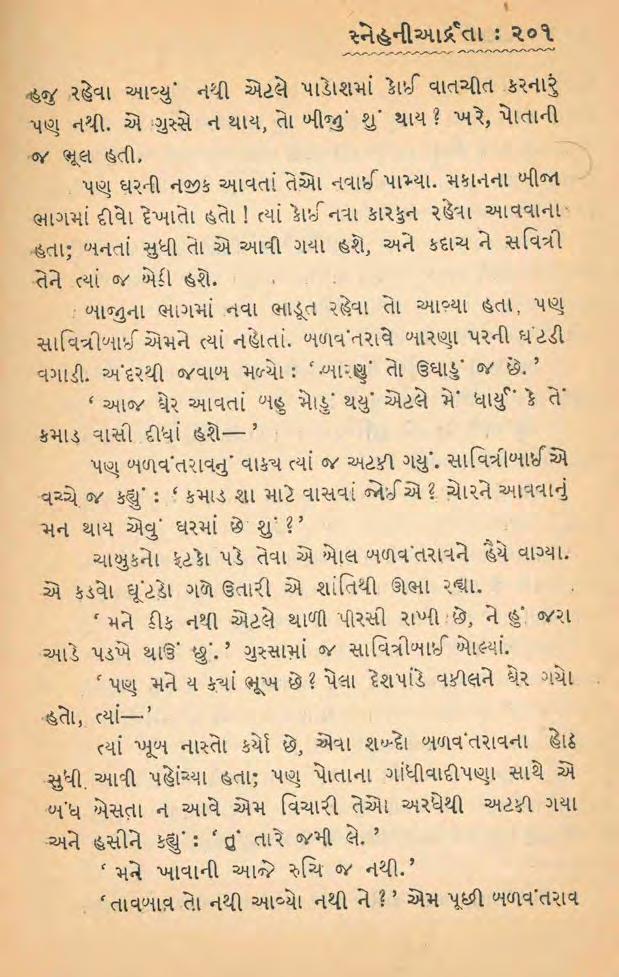 સ્નેહનીઆર્દ્રતા : ૨૦૧
હજુ રહેવા આવ્યું નથી એટલે પાડોશમાં કોઈ વાતચીત કરનારું
પણ નથી. એ ગુસ્સે ન થાય, તો બીજું શું થાય? ખરે, પોતાની
જ ભૂલ હતી.
પણ ઘરની નજીક આવતાં તેઓ નવાઈ પામ્યા. મકાનના બીજા
ભાગમાં દીવો દેખાતો હતો! ત્યાં કોઈ નવા કારકુન રહેવા આવવાના
હતા; બનતાં સુધી તો એ આવી ગયા હશે, અને કદાચ ને સવિત્રી
તેને ત્યાં જ બેઠી હશે.
બાજુના ભાગમાં નવા ભાડૂત રહેવા તો આવ્યા હતા, પણ
સાવિત્રીબાઈ એમને ત્યાં નહોતાં. બળવંતરાવે બારણા પરની ઘંટડી
વગાડી. અંદરથી જવાબ મળ્યો : ‘બારણું તો ઉઘાડું જ છે.’
‘આજ ઘેર આવતાં બહુ મોડું થયું એટલે મેં ધાર્યું કે તેં
કમાડ વાસી દીધાં હશે—’
પણ બળવંતરાવનું વાક્ય ત્યાં જ અટકી ગયું. સાવિત્રીબાઈ એ
વચ્ચે જ કહ્યું : ‘કમાડ શા માટે વાસવાં જોઈએ? ચોરને આવવાનું
મન થાય એવું ઘરમાં છે શું?’
ચાબુકનો ફટકો પડે તેવા એ બોલ બળવંતરાવને હૈયે વાગ્યા.
એ કડવો ઘૂંટડો ગળે ઉતારી એ શાંતિથી ઊભા રહ્યા.
‘મને ઠીક નથી એટલે થાળી પીરસી રાખી છે, ને હું જરા
આડે પડખે થાઉં છું.’ ગુસ્સામાં જ સાવિત્રીબાઈ બોલ્યાં.
‘પણ મને ય ક્યાં ભૂખ છે? પેલા દેશપાંડે વકીલને ઘેર ગયો
હતો, ત્યાં—’
ત્યાં ખૂબ નાસ્તો કર્યો છે, એવા શબ્દો બળવંતરાવના હોઠ
સુધી આવી પહોંચ્યા હતા; પણ પોતાના ગાંધીવાદીપણા સાથે એ
બંધ બેસતા ન આવે એમ વિચારી તેઓ અરધેથી અટકી ગયા
અને હસીને કહ્યું : ‘તું તારે જમી લે.’
‘મને ખાવાની આજે રુચિ જ નથી.’
‘તાવબાવ તો નથી આવ્યો નથી ને?’ એમ પૂછી બળવંતરાવ